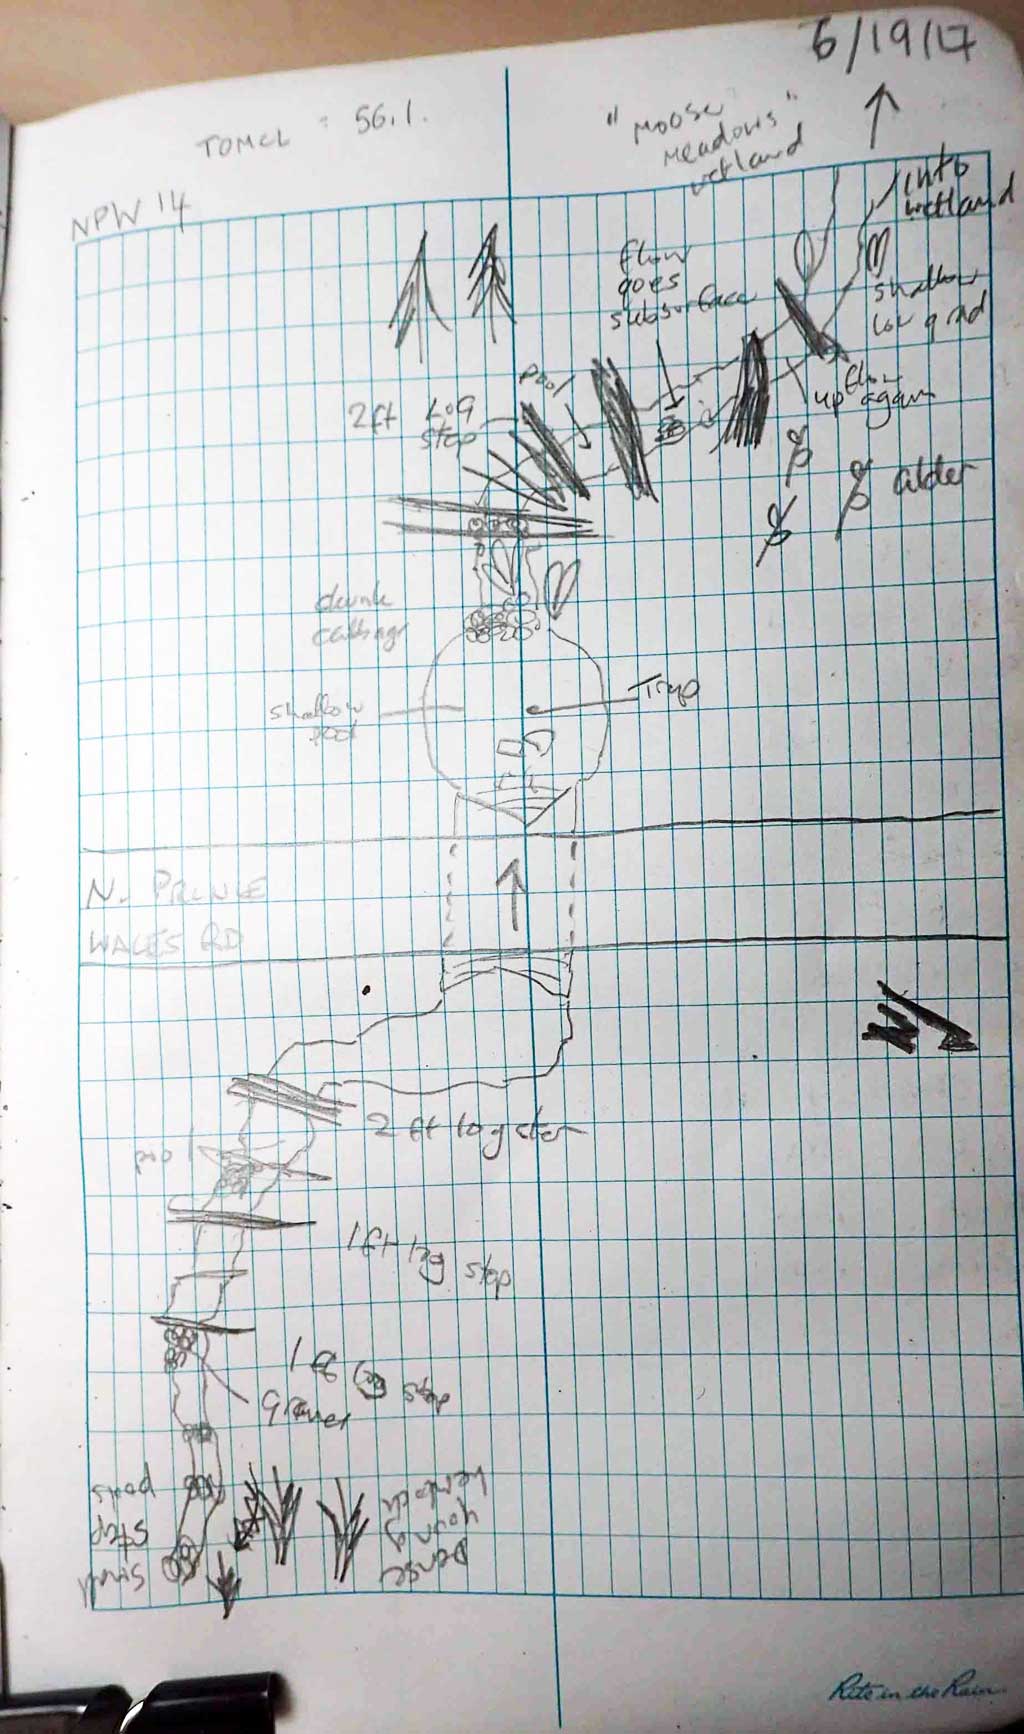 6/19/17
TOMCL : 56.1.
"Moose
Meadows"
wetland
NPW 14
into
wetland
flow
goes
subsurface
shallow
low grad
pool
2ft LOG
step
flow
up again
alder
skunk
cabbage
Trap
shallow
pool
N. PRINCE
WALES RD
N
2 ft log step
pool
1 ft log step
1 ft log step
gravel
small
step
pools
Dense
young
hemlock
Rite in the Rain